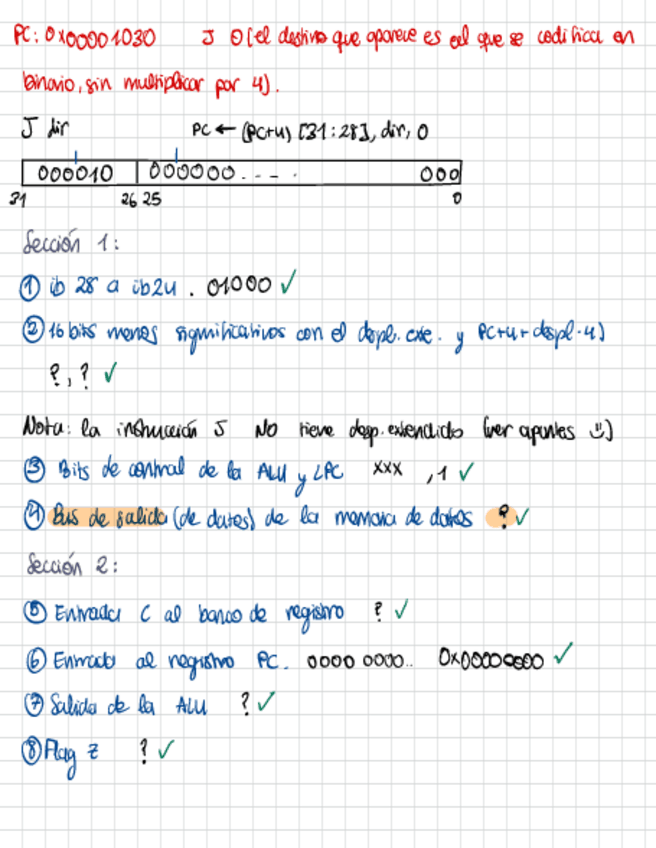 PC: 0x00001030 J 0 (el destino que aparece es el que se codifica en
binario, sin multiplicar por 4).
J dir PC ← (PC+4) [31:28], dir, 0
000010 000000.--- . 000
31 26 25 0
Sección 1:
① ib 28 a ib24 . 01000 ✓
② 16 bits menos significativos con el despl. exe. y PC+4+despl·4)
?, ? ✓
Nota: la instrucción J NO tiene desp. extendido (ver apuntes ☺)
③ Bits de control de la ALU y LPC xxx , 1 ✓
④ Bus de salida (de datos) de la memoria de datos ? ✓
Sección 2:
⑤ Entrada C al banco de registro ? ✓
⑥ Entrada al registro PC. 0000 0000.. 0x00000000 ✓
⑦ Salida de la ALU ? ✓
⑧ Flag z ? ✓